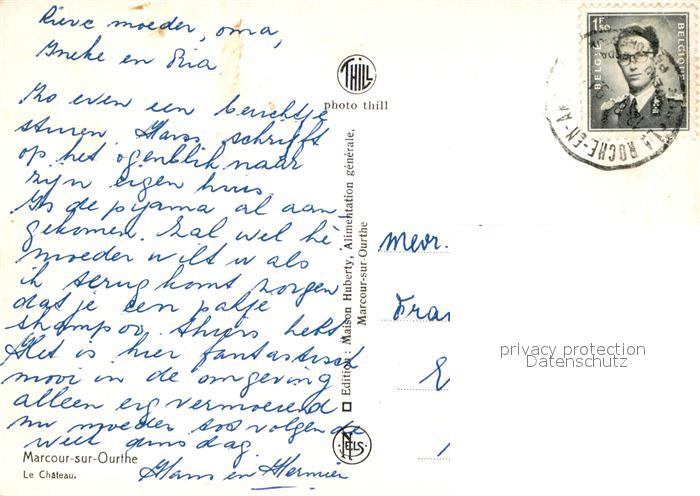 Lieve moeder, oma,
Ineke en Ria
Zo even een berichtje
sturen. Hans schrijft
op het ogenblik naar
zijn eigen huis.
Is de pyjama al aan-
gekomen. Zal wel hè.
moeder wilt u als
ik terug komt zorgen
dat je een pakje
shampoo thuis hebt
Het is hier fantastisch
mooi in de omgeving
alleen erg vermoeiend
nu moeder tot volgende
week dinsdag.
Hans en
Marcour-sur-Ourthe
Le Château.
THILL
photo thill
Edition : Maison Huberty, Alimentation générale,
Marcour-sur-Ourthe
MELS
1F50
BELGIE
BELGIQUE
LA ROCHE-EN-A
Mevr.
Fra
privacy protection
Datenschutz